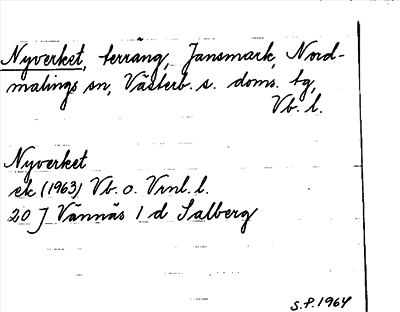 Nyverket, terräng, Jansmark, Nord-
malings sn, Västerb. s. doms. tg,
Vb. l.
Nyverket
ek (1963) Vb. o. Vrnl. l.
20 J Vännäs 1 d Salberg
S.P. 1964